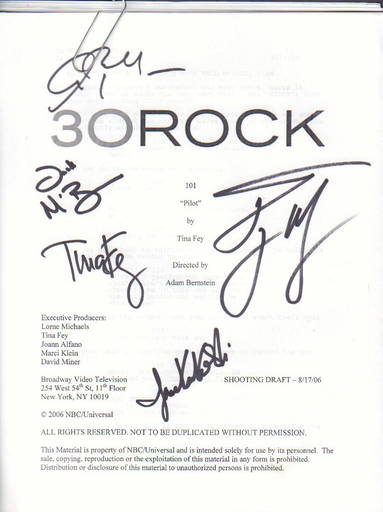 30ROCK
101
"Pilot"
by
Tina Fey
Directed by
Adam Bernstein
Tina Fey
Executive Producers:
Lorne Michaels
Tina Fey
Joann Alfano
Marci Klein
David Miner
Broadway Video Television
254 West 54th St, 11th Floor
New York, NY 10019
SHOOTING DRAFT – 8/17/06
© 2006 NBC/Universal
ALL RIGHTS RESERVED. NOT TO BE DUPLICATED WITHOUT PERMISSION.
This Material is property of NBC/Universal and is intended solely for use by its personnel. The
sale, copying, reproduction or the exploitation of this material in any form is prohibited.
Distribution or disclosure of this material to unauthorized persons is prohibited.